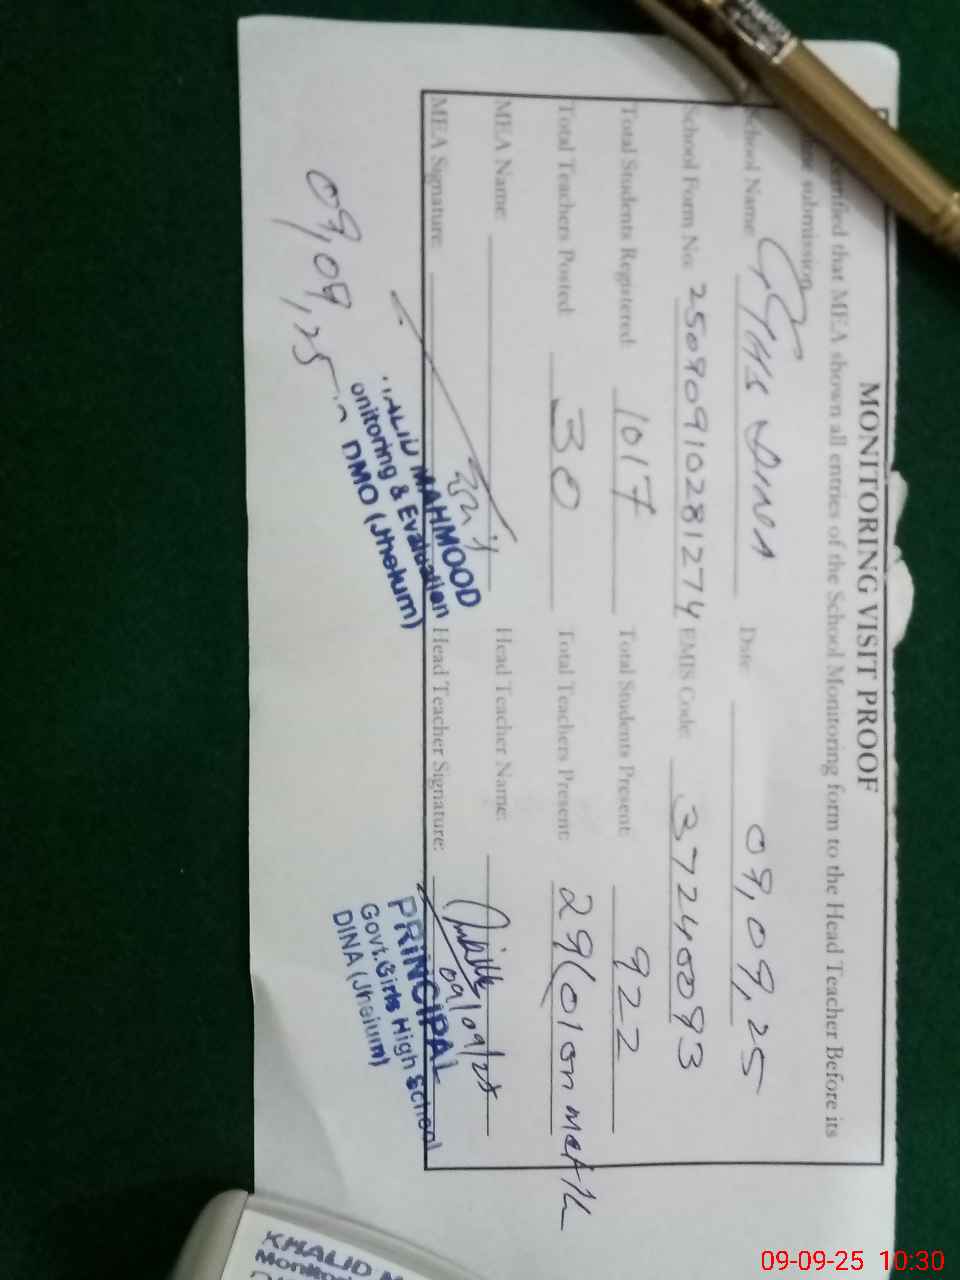 MONITORING VISIT PROOF
certified that MEA shown all entries of the School Monitoring form to the Head Teacher Before its
submission
School Name: GGHS DINA Date: 09,09,25
School Form No: 25090910281274 EMIS Code: 37240093
Total Students Registered: 1017 Total Students Present: 922
Total Teachers Posted: 30 Total Teachers Present: 29(01 on
MEA Name: Head Teacher Name:
MEA Signature: Head Teacher Signature:
09/09/25
MAHMOOD
onitoring & Evaluation
DMO (Jhelum)
09,09,25
PRINCIPAL
Govt.Girls High School
DINA (Jhelum)
KHALID M
Monitori
09-09-25 10:30